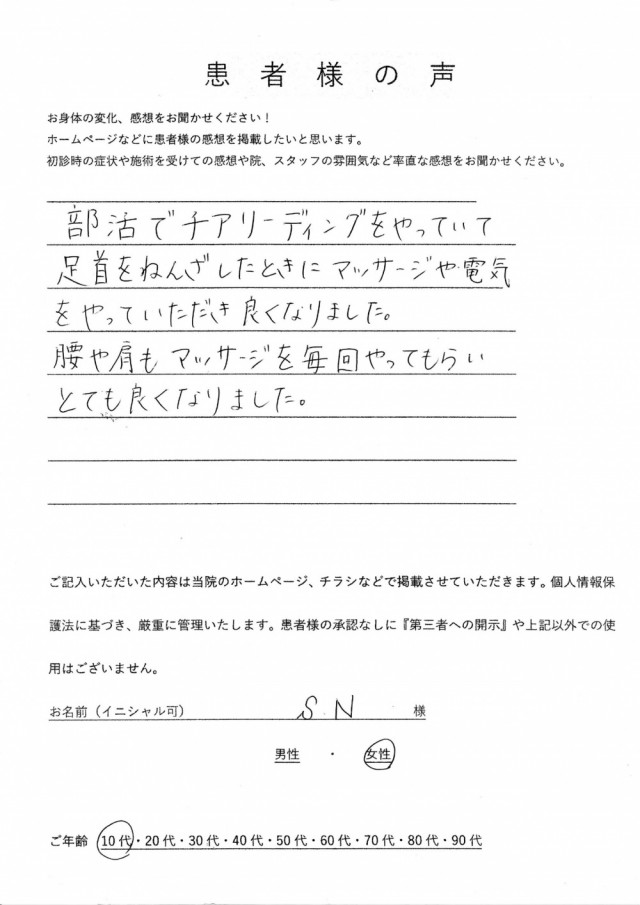 患者様の声
お身体の変化、感想をお聞かせください！
ホームページなどに患者様の感想を掲載したいと思います。
初診時の症状や施術を受けての感想や院、スタッフの雰囲気など率直な感想をお聞かせください。
部活でチアリーディングをやっていて
足首をねんざしたときにマッサージや電気
をやっていただき良くなりました。
腰や肩もマッサージを毎回やってもらい
とても良くなりました。
ご記入いただいた内容は当院のホームページ、チラシなどで掲載させていただきます。個人情報保
護法に基づき、厳重に管理いたします。患者様の承認なしに『第三者への開示』や上記以外での使
用はございません。
お名前（イニシャル可） SN 様
男性 ・ 女性
ご年齢 10代・20代・30代・40代・50代・60代・70代・80代・90代